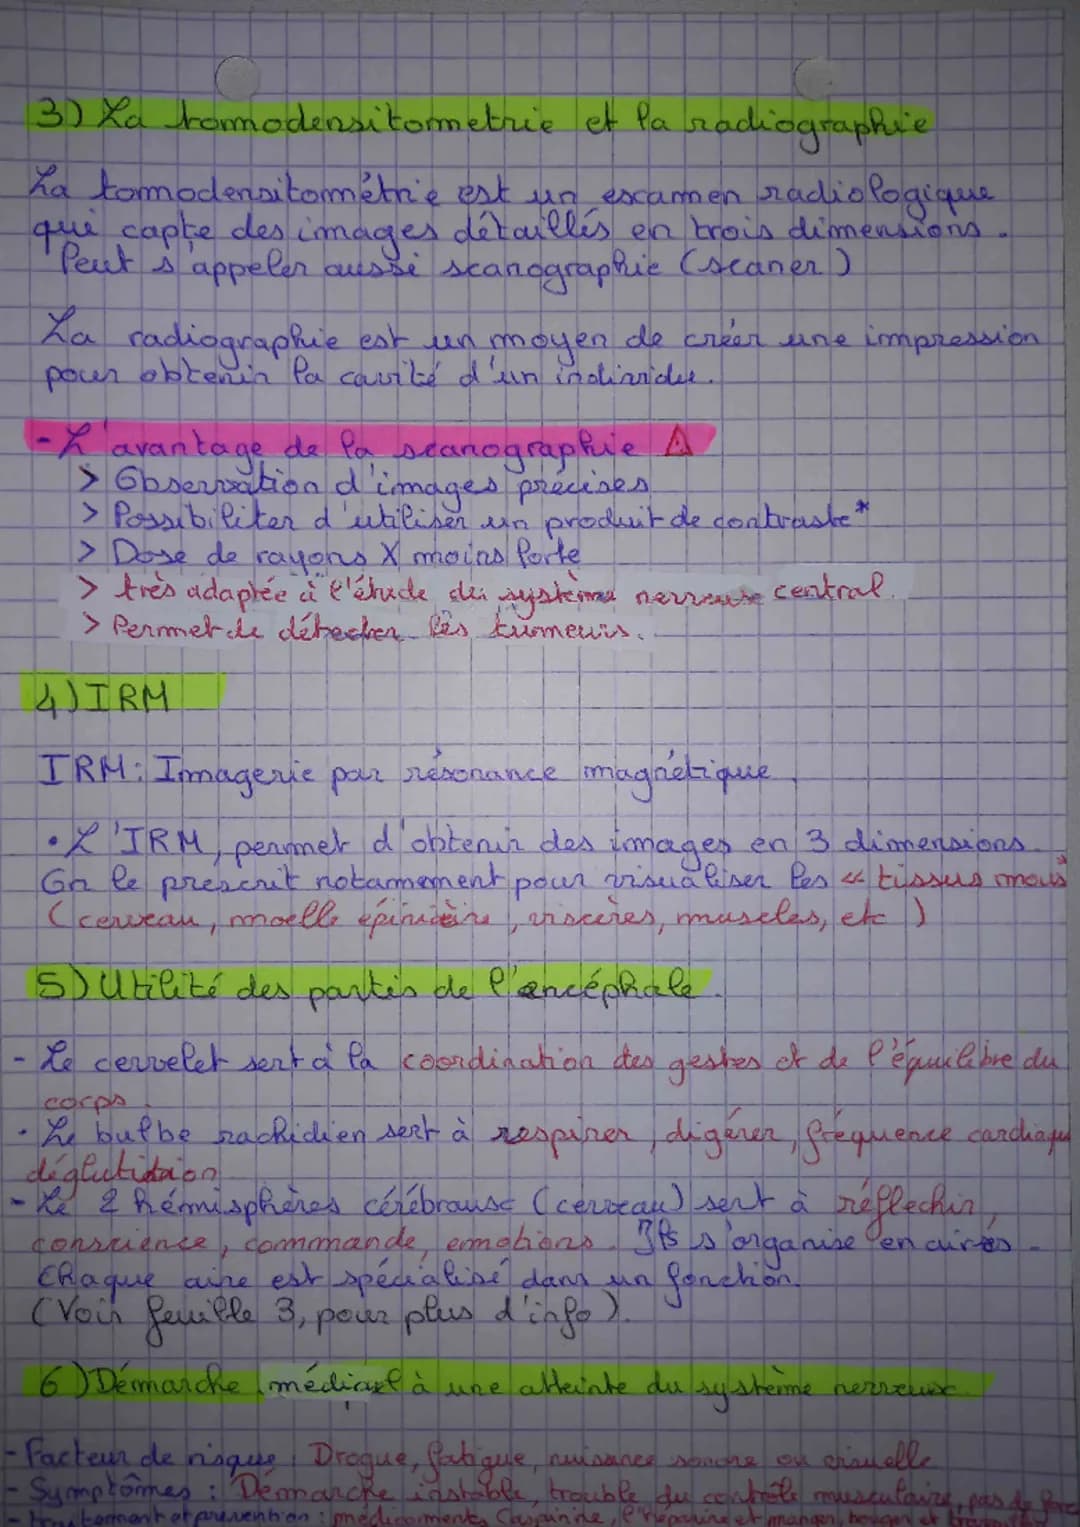 3) La tomodensitometrie et la radiographie
La tomodensitométrie est un examen radiologique
qui capte des images détaillés en trois dimensions.
Peut s'appeler aussi scanographie (scaner)
La radiographie est un moyen de créer une impression
pour obtenir la cavité d'un individu.
- L'avantage de la scanographie
> Observation d'images précises
> Possibiliter d'utiliser un produit de contraste*
> Dose de rayons X moins forte
> très adaptée à l'étude du système nerveuse central.
> Permet de détecter les tumeurs.
4) IRM
IRM: Imagerie par résonance magnétique
• L'IRM, permet d'obtenir des images en 3 dimensions.
On le prescrit notamment pour visualiser les « tissus mous"
(cerveau, moelle épinière, viscères, muscles, etc)
5) Utilité des partis de l'encéphale.
- Le cervelet sert à la coordination des gestes et de l'équilibre du
corps.
• Le bulbe rachidien sert à respirer, digérer, fréquence cardiaque
déglutition
- Le 2 hémisphères cérébraux (cerveau) sert à réflechir,
conscience, commande, emotions. Ils s'organise en aires.
Chaque aire est spécialisé dans un fonction.
(Voir feuille 3, pour plus d'info).
6) Démarche médical à une atteinte du système nerveux
- Facteur de risque : Drogue, fatigue, nuisance sonore ou visuelle
- Symptômes : Démarche instable, trouble du contrôle musculaire, pas de force
- traitement et prévention : médicaments (aspirine,